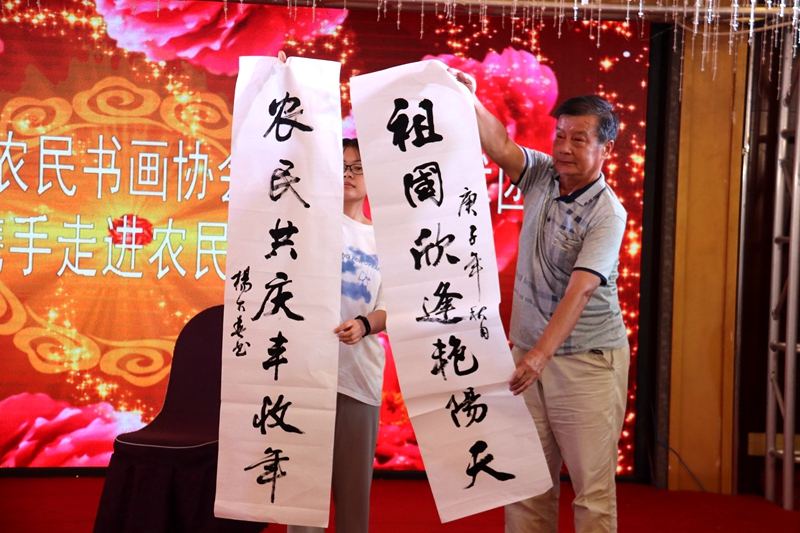 农民书画协会 团
携手走进农民
祖國欣逢艳陽天
庚子年秋月
农民共庆丰收年
楊
书